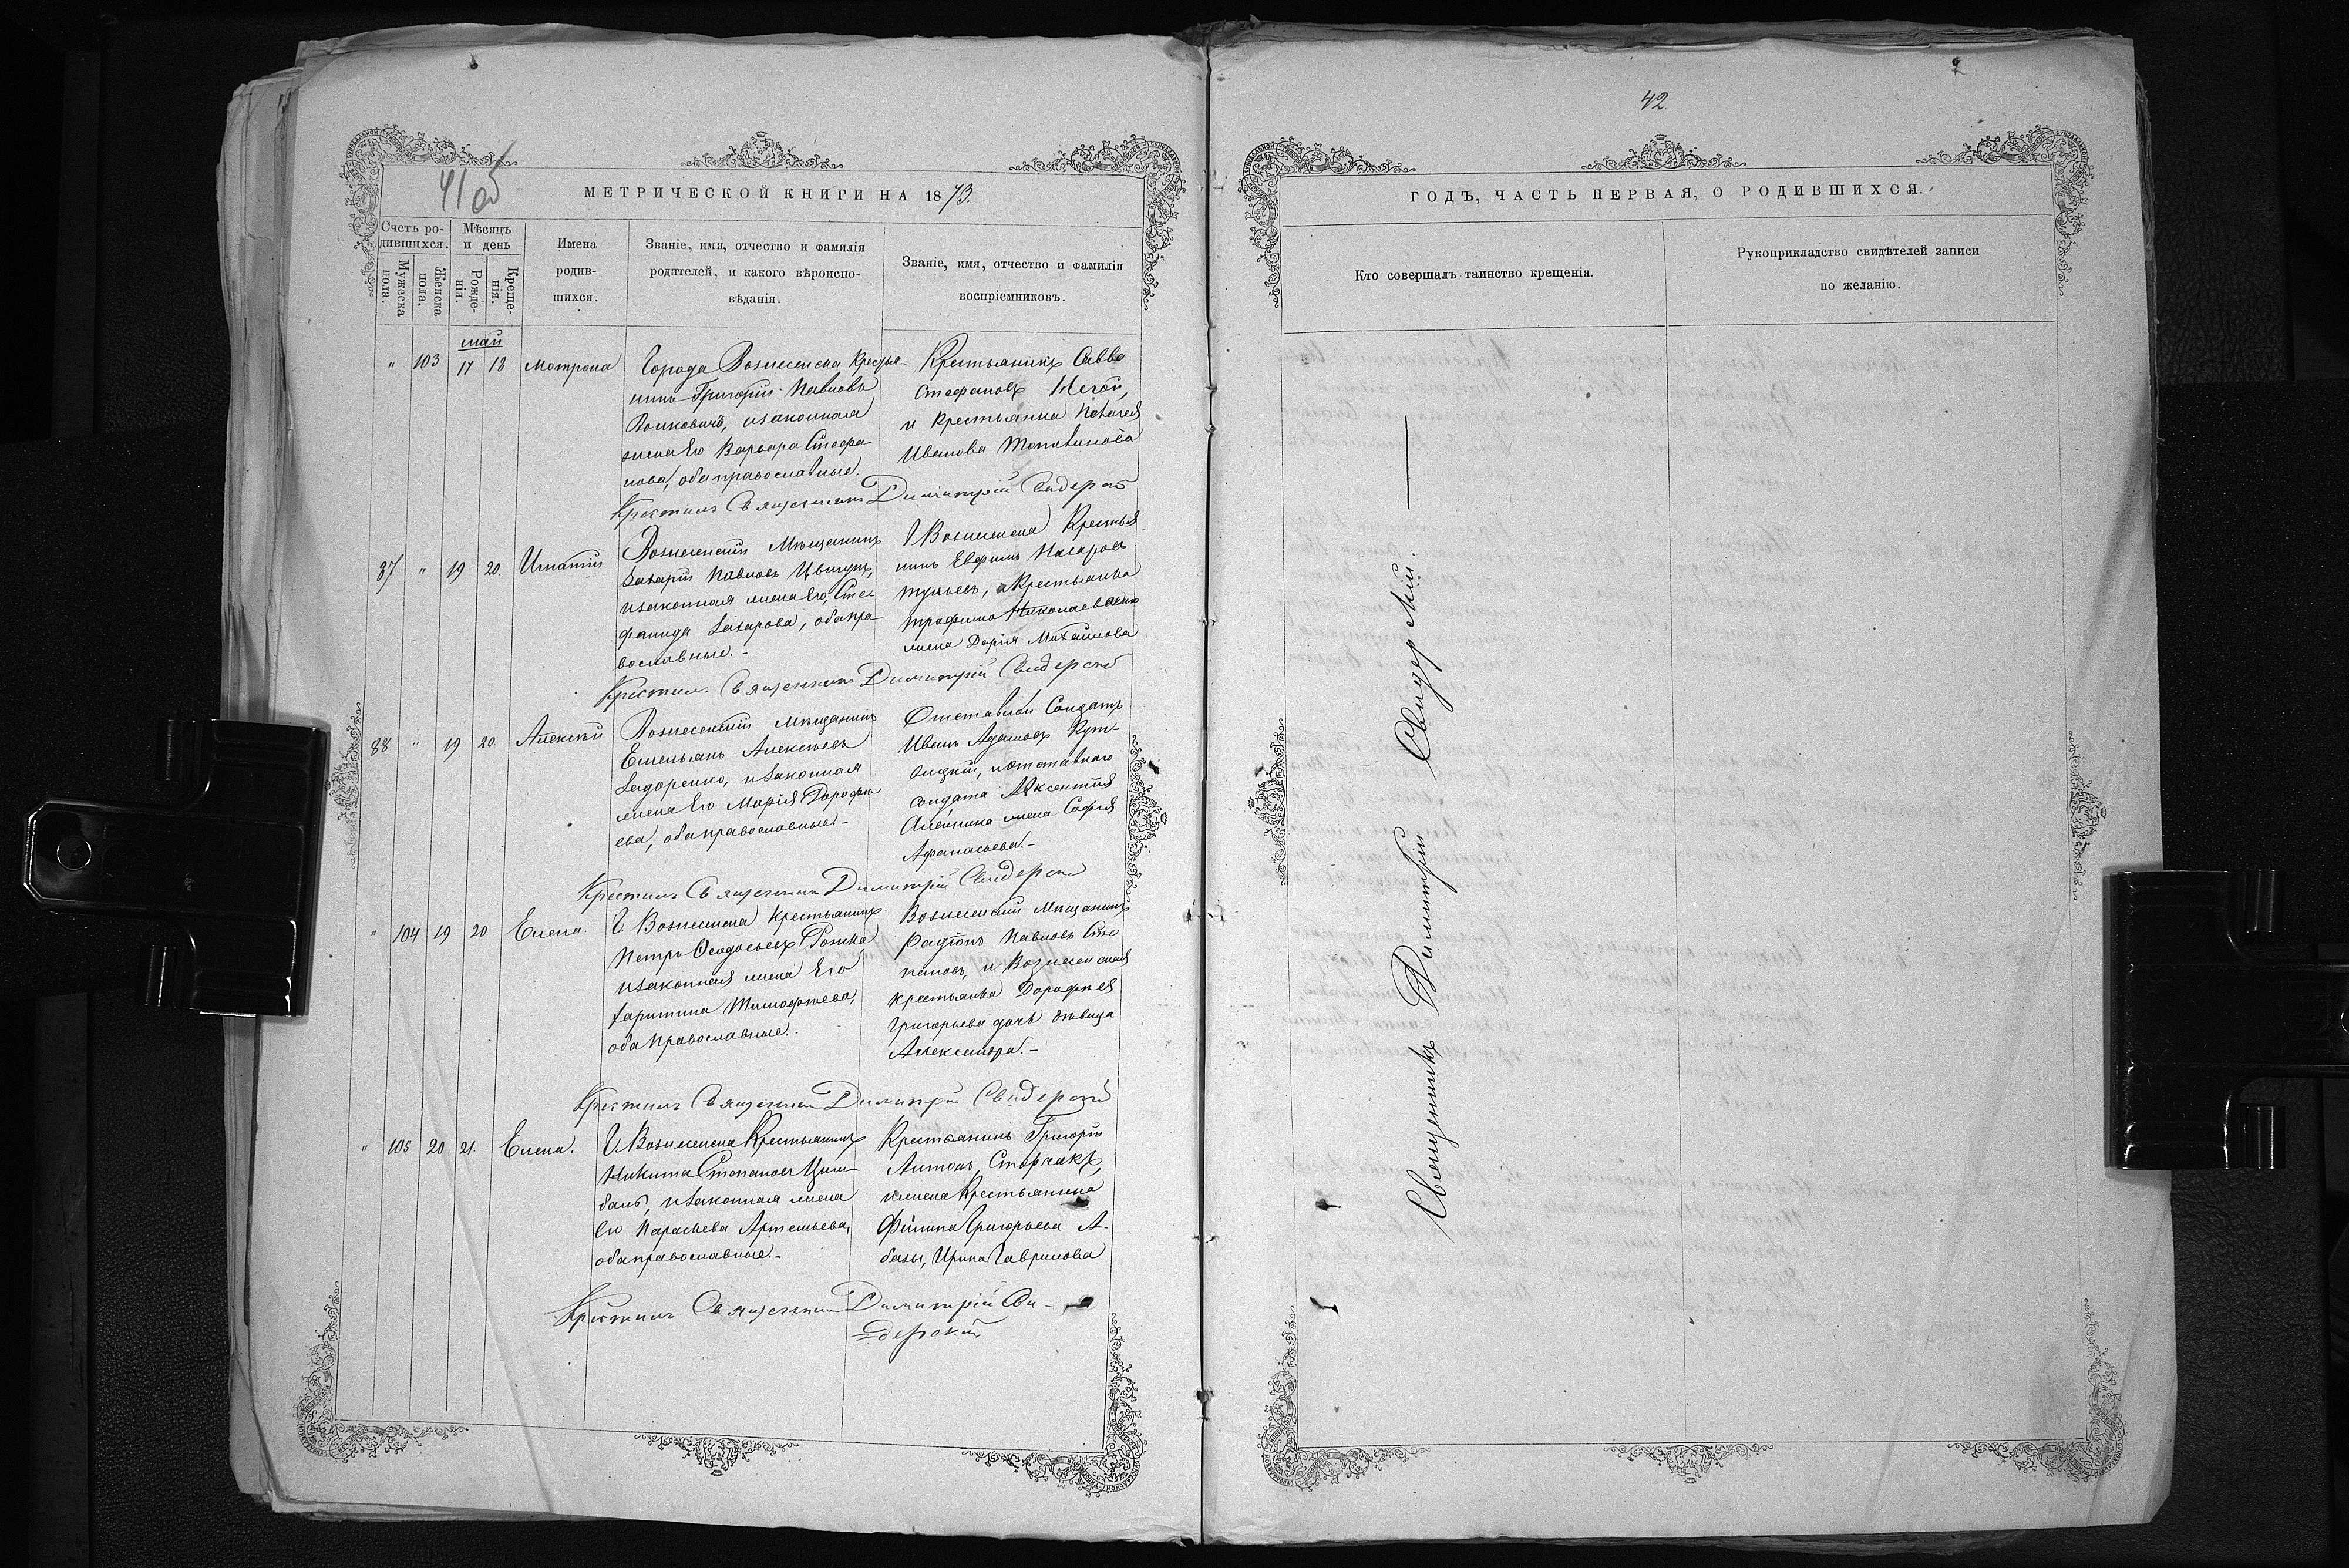 41об
МЕТРИЧЕСКОЙ КНИГИ НА 1873.
Счетъ родившихся.
Мужеска пола.
Женска пола.
Мѣсяцъ и день
Рожденія.
Крещенія.
Имена родившихся.
Званіе, имя, отчество и фамилія родителей, и какого вѣроисповѣданія.
Званіе, имя, отчество и фамилія воспріемниковъ.
май
" 103 17 18 Мотрона
Города Вознесенска Крестья-
нинъ Григорій Павловъ
Волковичъ, изаконная
жена Его Варвара Стефа
нова, оба православные.
Крестьянинъ Савва
Стефановъ Негой,
и Крестьянка Пелагея
Иванова
Крестилъ Священникъ Димитрій Свидерскій
87 " 19 20. Игнатій
Вознесенскій Мѣщанинъ
Захарій Павловъ Цвигунъ,
изаконная жена Его, Сте-
фанида Захарова, оба пра
вославные.-
Г Вознесенска Крестья
нинъ Евфимъ Назаровъ
и Крестьянина
Трофима Николаева
жена Дарія Михайлова
Крестилъ Священникъ Димитрій Свидерскій
88 " 19 20. Алексѣй
Вознесенскій Мѣщанинъ
Емельянъ Алексѣевъ
изаконная
жена Его Марія Дорофѣ
ева, оба православные.-
Отставной Солдатъ
Иванъ Адамовъ
и отставнаго
Солдата Авксентія
Олейника жена Софія
Афанасьева.-
Крестилъ Священникъ Димитрій Свидерскій
" 104 19 20 Елена.
Г. Вознесенска Крестьянинъ
Петръ Феодосьевъ
изаконная жена Его
Харитина Тимофѣева,
оба Православные.
Вознесенскій Мѣщанинъ
Радіонъ Павловъ Сте
пановъ, и Вознесенская
крестьянка Дорофея
Григорьева дочь дѣвица
Александра.-
Крестилъ Священникъ Димитрій Свидерскій
" 105 20 21. Елена.
Г. Вознесенска Крестьянинъ
Никита Степановъ Цим-
балъ, изаконная жена
Его Параскева Артемьева,
оба православные.-
Крестьянинъ Григорій
Антоновъ Сторчакъ,
и жена Крестьянина
Филипа Григорьева А-
базы, Ирина Гаврилова
Крестилъ Священникъ Димитрій Сви-
дерскій
42
ГОДЪ, ЧАСТЬ ПЕРВАЯ, О РОДИВШИХСЯ.
Кто совершалъ таинство крещенія.
Рукоприкладство свидѣтелей записи
по желанію.
Священникъ Димитрій Свидерскій.